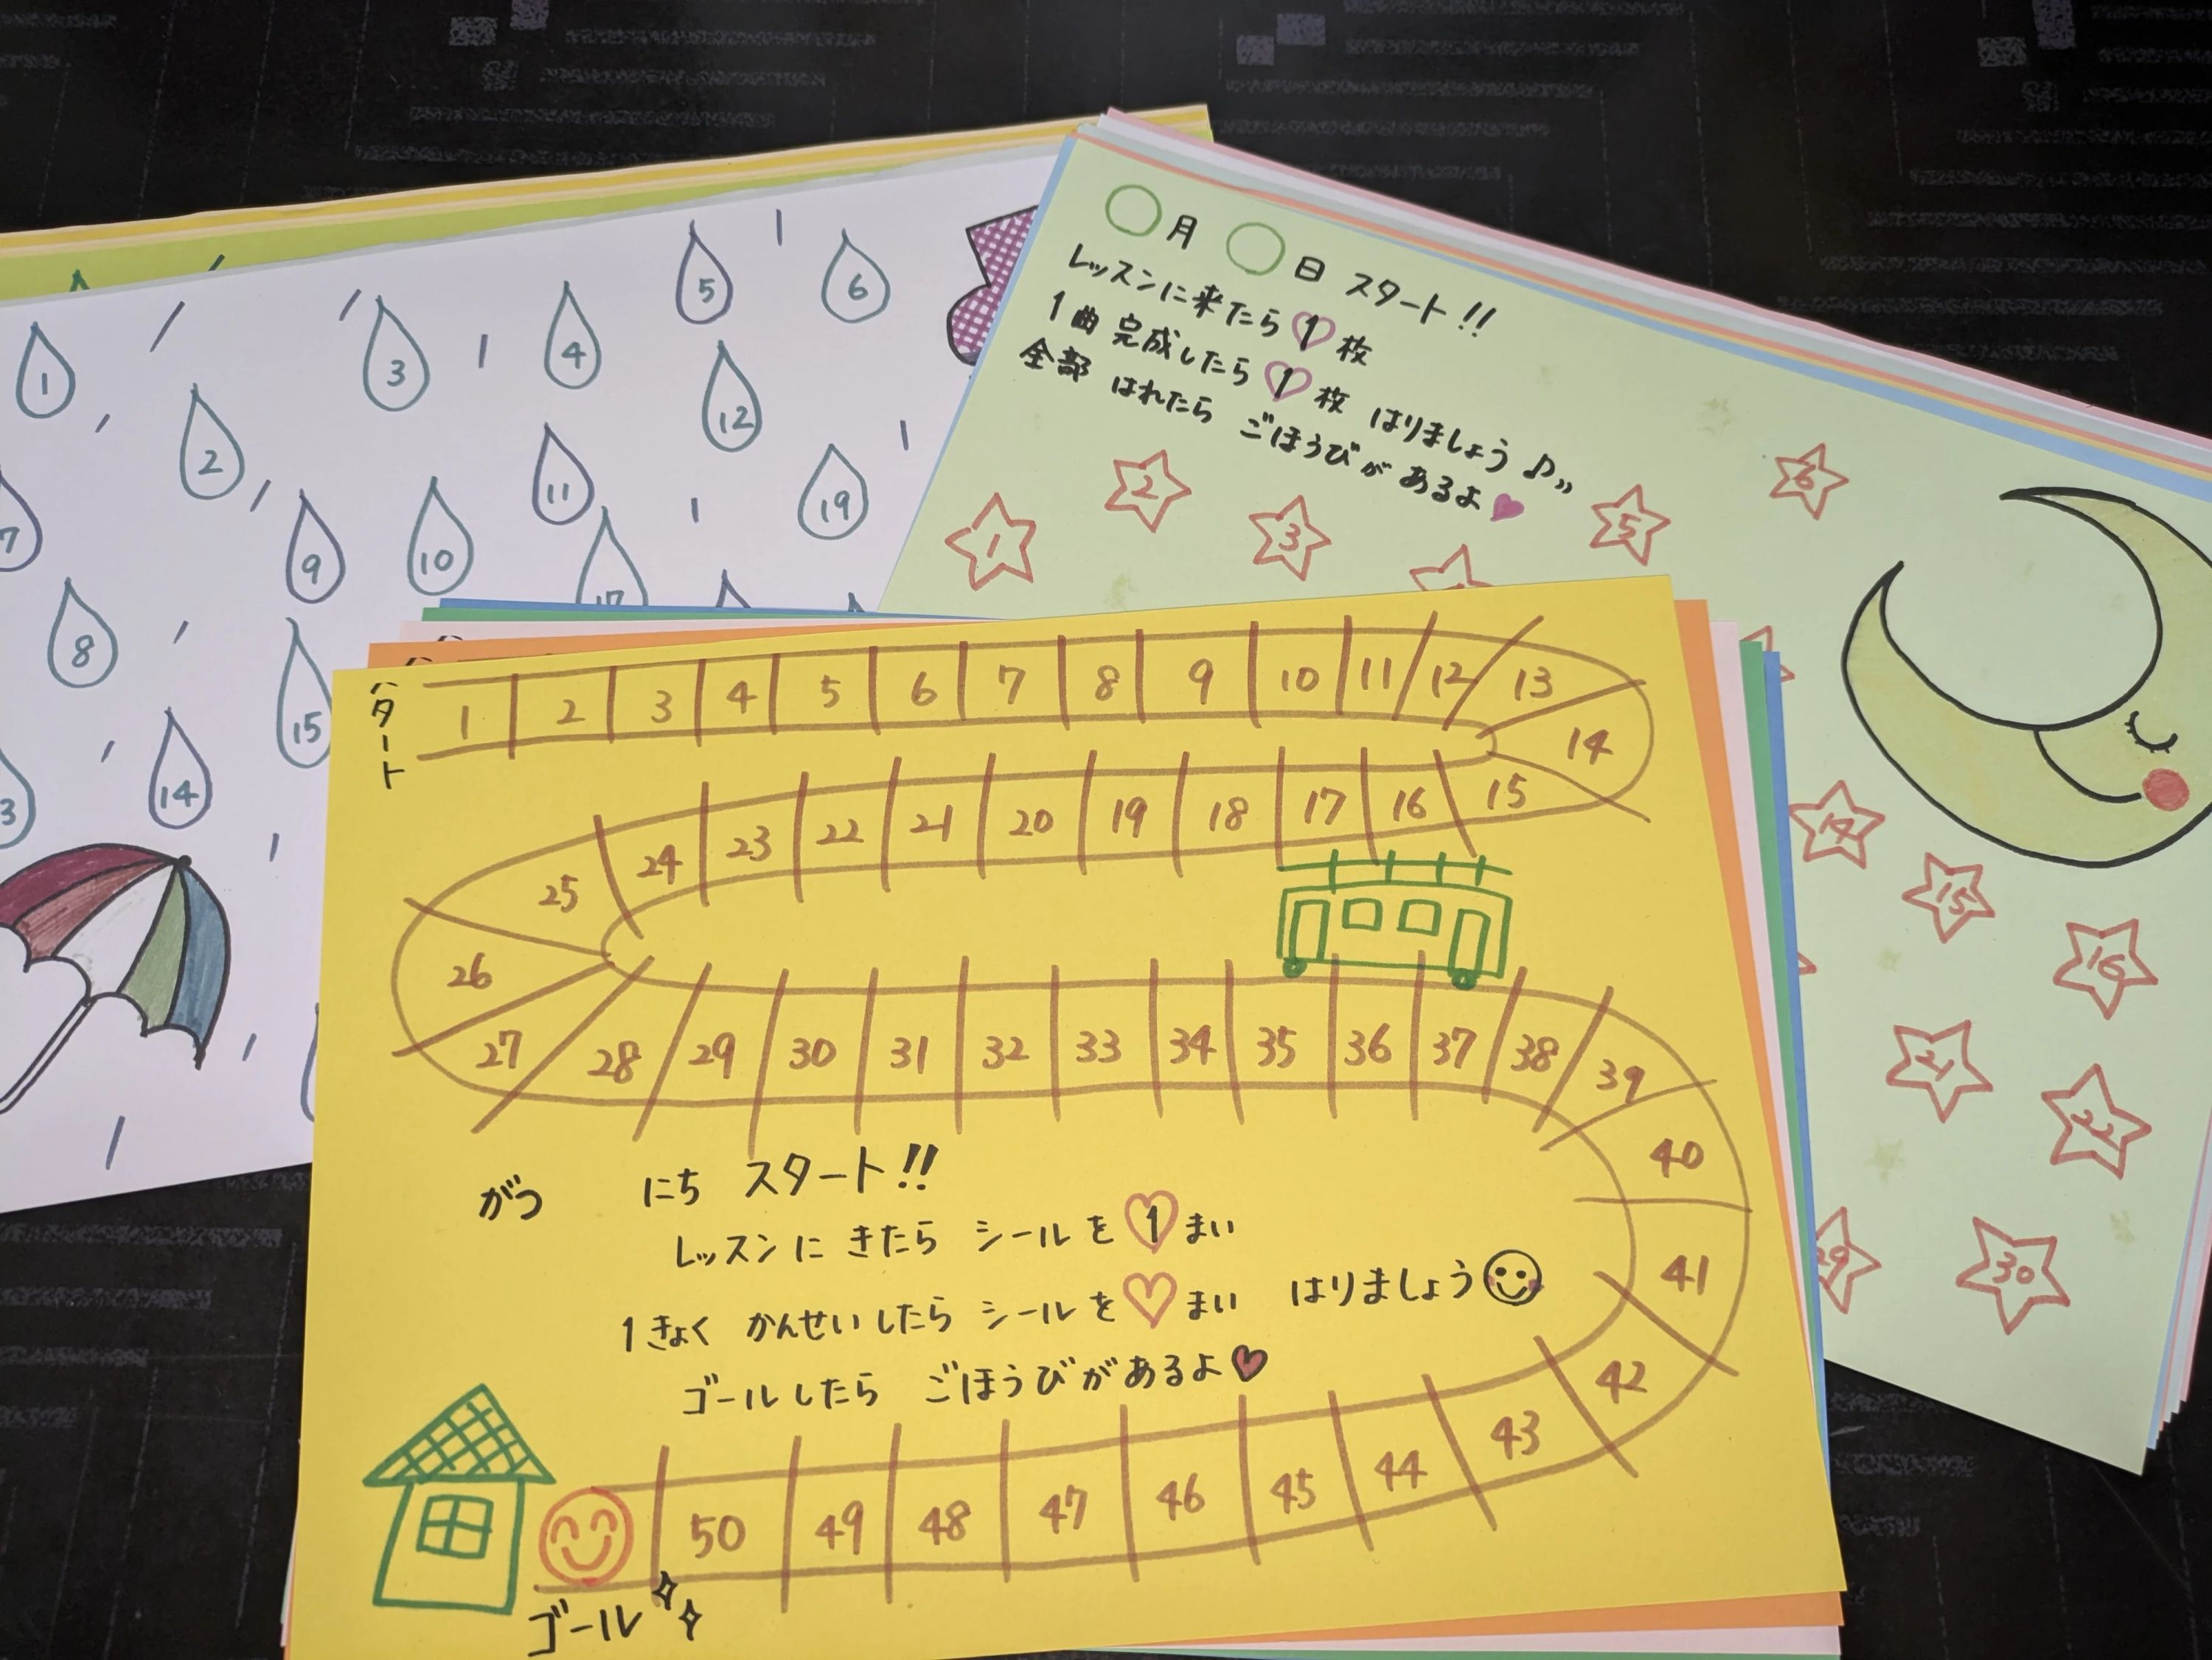 1
2
3
4
5
6
7
8
9
10
11
12
14
15
17
19
○月 ○日 スタート!!
レッスンに来たら 1 枚
1曲 完成したら 1 枚 はりましょう♪
全部 はれたら ごほうびが あるよ♥
1
2
3
5
6
14
15
16
21
22
29
30
スタート
1 2 3 4 5 6 7 8 9 10 11 12 13
14
25 24 23 22 21 20 19 18 17 16 15
26
27 28 29 30 31 32 33 34 35 36 37 38 39
40
41
42
がつ にち スタート!!
レッスンに きたら シールを 1 まい
1きょく かんせいしたら シールを ♡ まい はりましょう
ゴールしたら ごほうびがあるよ♥
50 49 48 47 46 45 44 43
ゴール